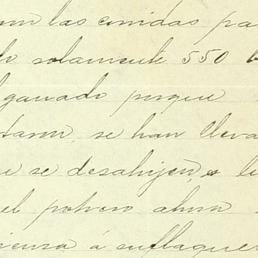 las comidas pa
solamente 550
ganado porque
se han lleva
se desahijen, o
el potrero ahora
á enflaque